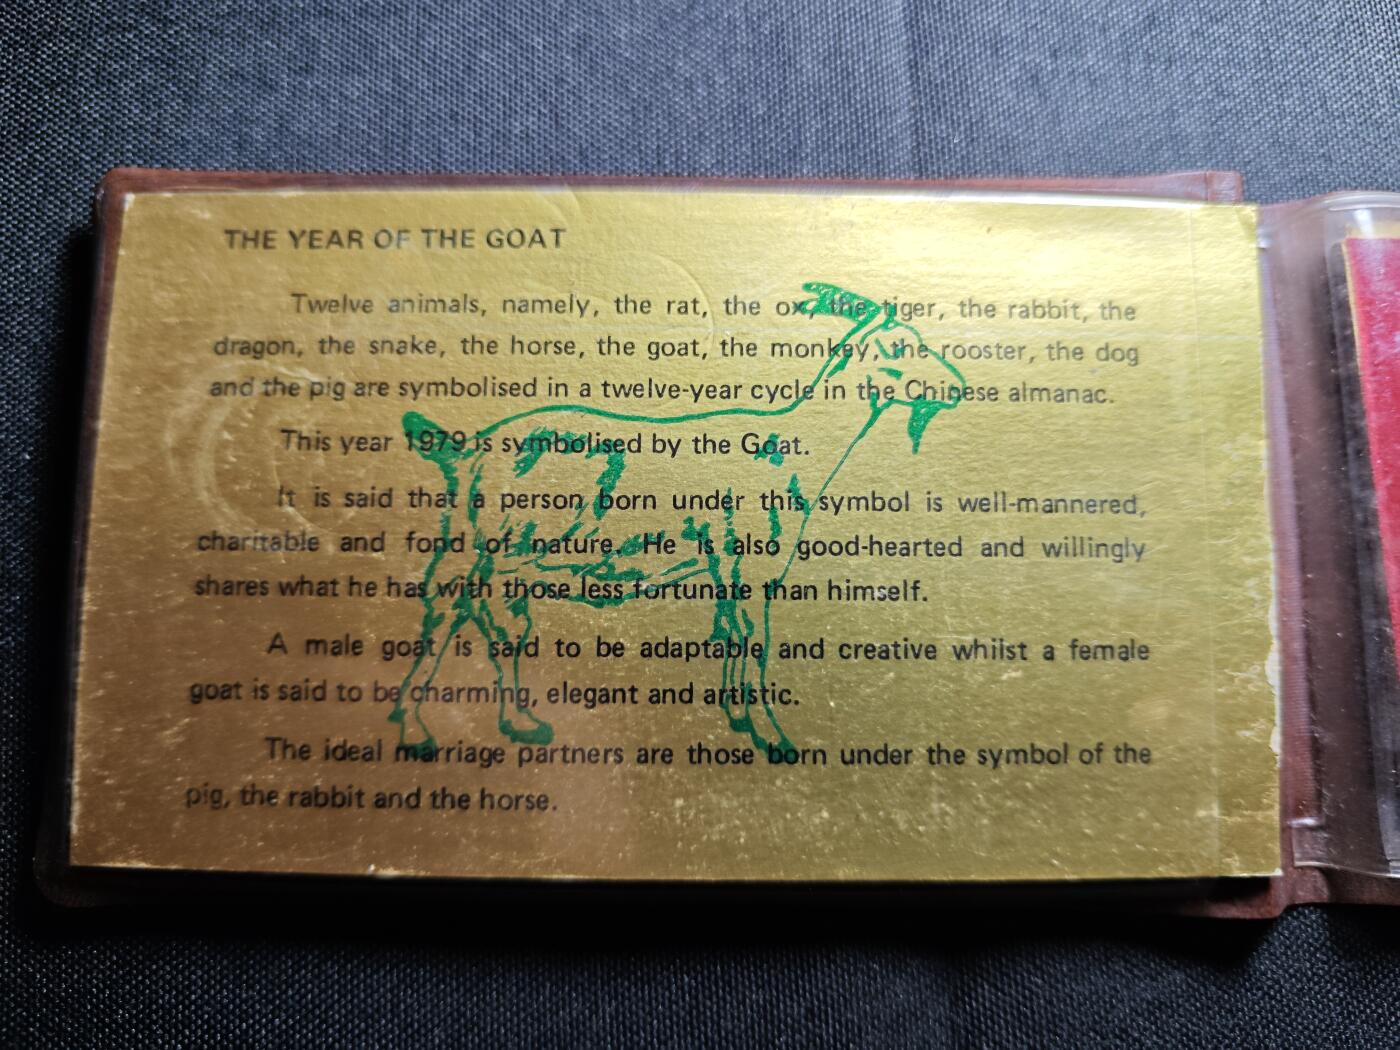 THE YEAR OF THE GOAT
Twelve animals, namely, the rat, the ox, the tiger, the rabbit, the
dragon, the snake, the horse, the goat, the monkey, the rooster, the dog
and the pig are symbolised in a twelve-year cycle in the Chinese almanac.
This year 1979 is symbolised by the Goat.
It is said that a person born under this symbol is well-mannered,
charitable and fond of nature. He is also good-hearted and willingly
shares what he has with those less fortunate than himself.
A male goat is said to be adaptable and creative whilst a female
goat is said to be charming, elegant and artistic.
The ideal marriage partners are those born under the symbol of the
pig, the rabbit and the horse.